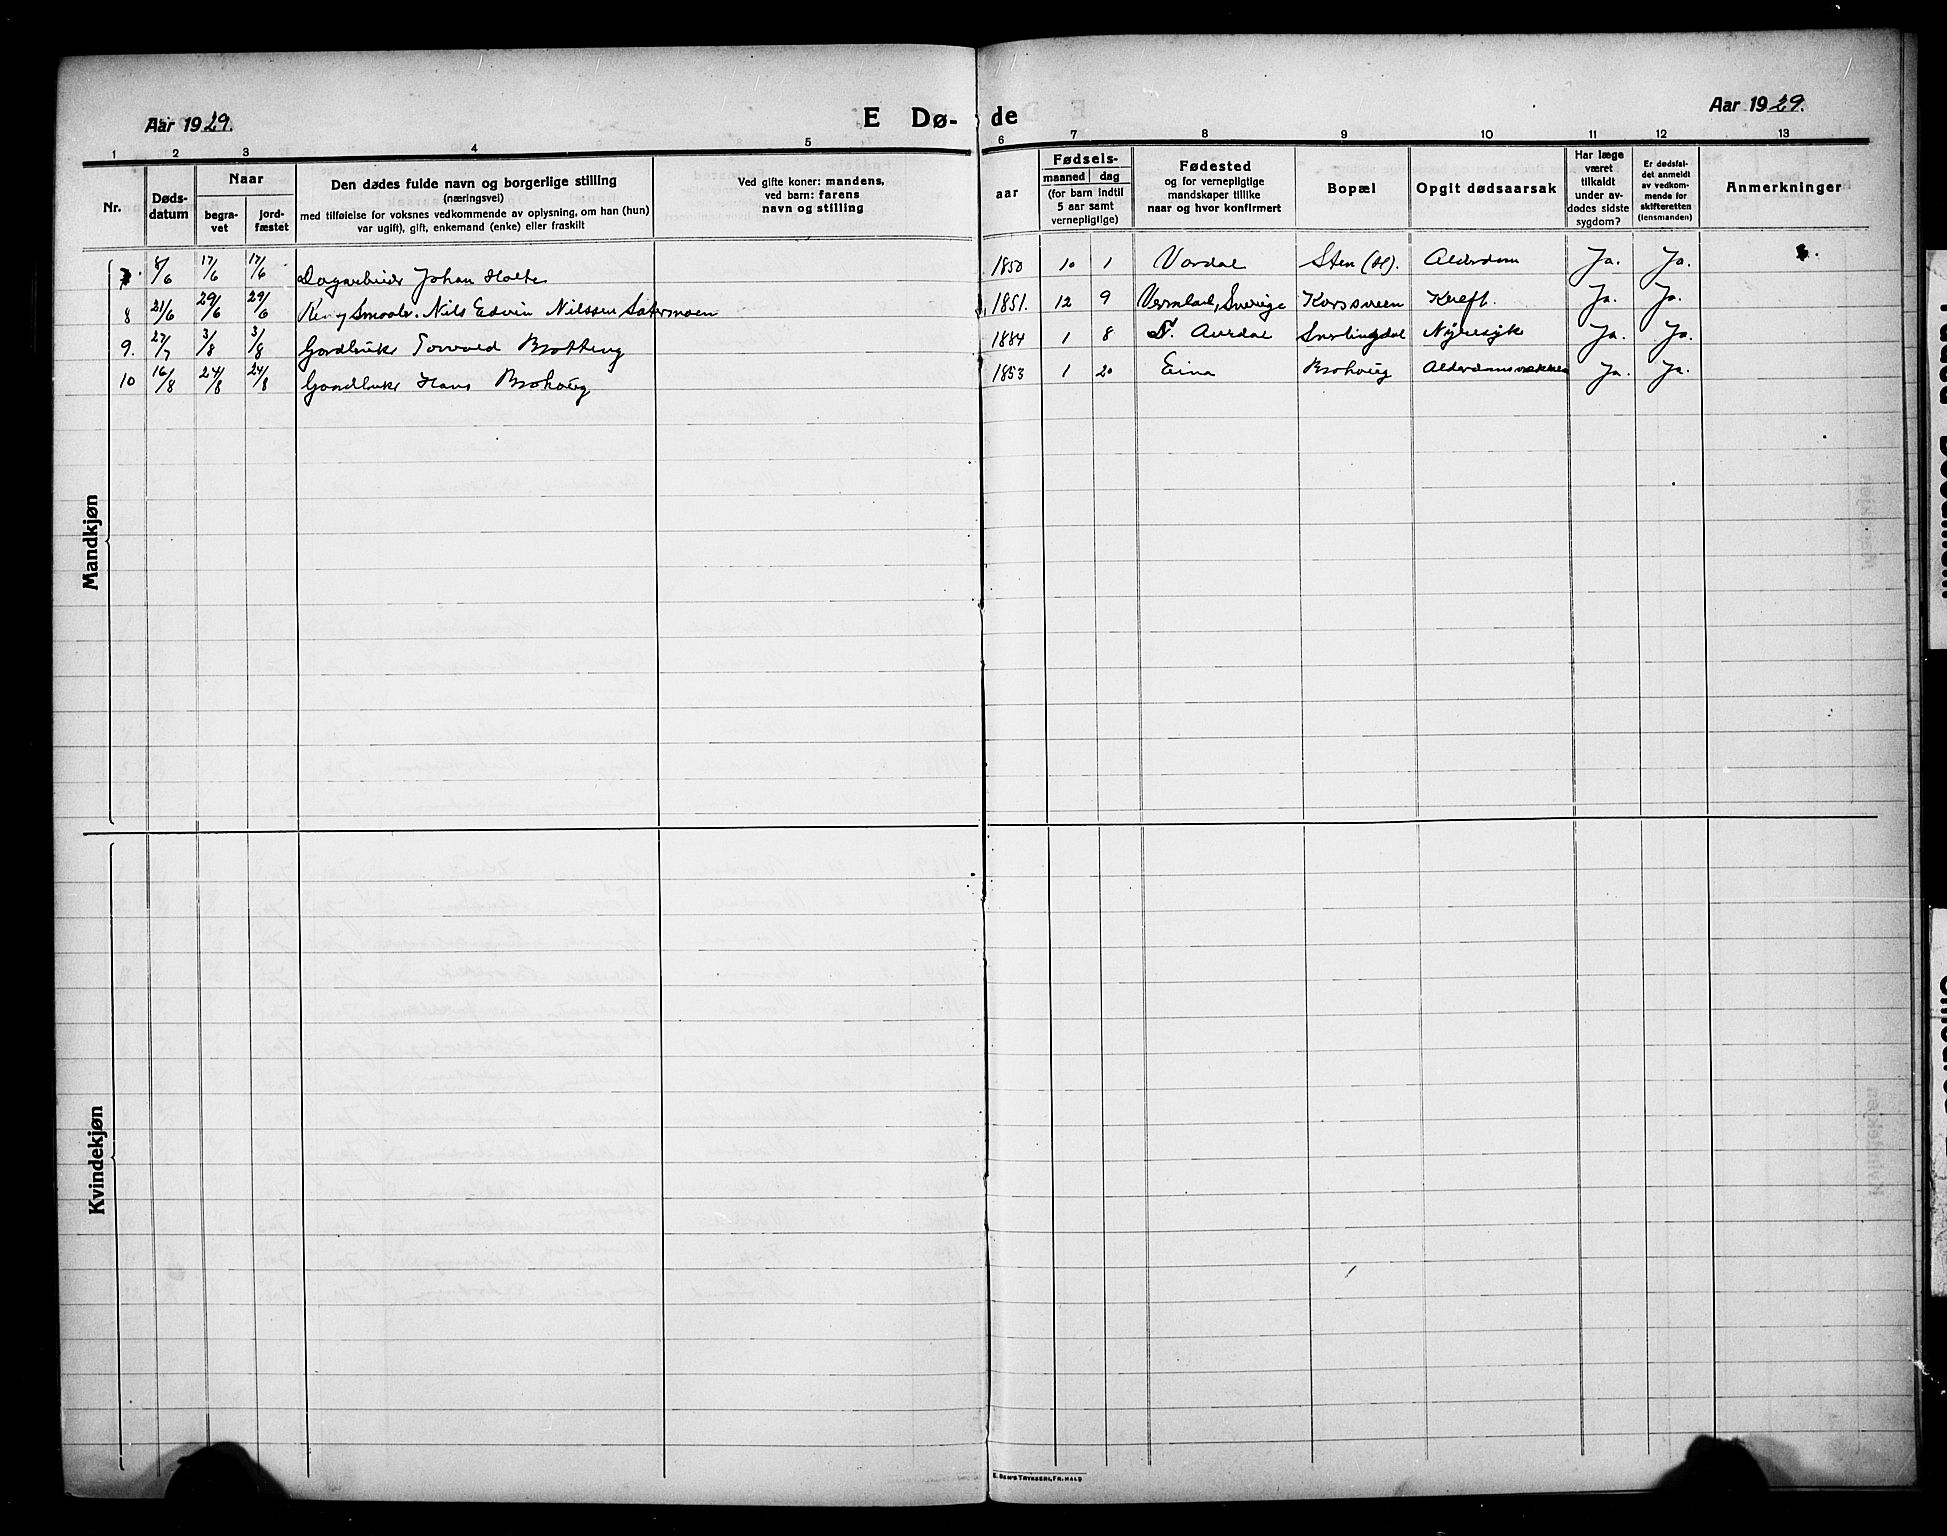 Aar 1929.
E Dø- de
Aar 1929.
1 2 3 4 5 6 7 8 9 10 11 12 13
Nr.
Døds-
datum
Naar
begra-
vet
jord-
fæstet
Den dødes fulde navn og borgerlige stilling
(næringsvei)
med tilføielse for voksnes vedkommende av oplysning, om han (hun)
var ugift), gift, enkemand (enke) eller fraskilt
Ved gifte koner: mandens,
ved barn: farens
navn og stilling
aar
Fødsels-
maaned dag
(for barn indtil
5 aar samt
vernepligtige)
Fødested
og for vernepligtige
mandskaper tillike
naar og hvor konfirmert
Bopæl
Opgit dødsaarsak
Har læge
været
tilkaldt
under av-
dødes sidste
sygdom?
Er dødsfal-
det anmeldt
av vedkom-
mende for
skifteretten
(lensmanden)
Anmerkninger
Mandkjøn
7. 8/6 17/6 17/6 Dagarbeider Johan Holte 1850 10 1 Vardal Sten (H). Alderdom Ja. Ja.
8 21/6 29/6 29/6 Smaabr. Nils Edvin Nilssen Sætermoen 1851. 12 9 Vermland, Sverige Korssveen Kreft. Ja. Ja.
9. 27/7 3/8 3/8 Gardbruker Torvald Bratteng 1884 1 8 Aurdal Snertingdal Nyresyk Ja. Ja.
10 16/8 24/8 24/8 Gardbruker Hans Brohaug 1853 1 20 Eina Brohaug Ja. Ja.
Kvindekjøn
E. SEM'S TRYKKERI, FR.HALD